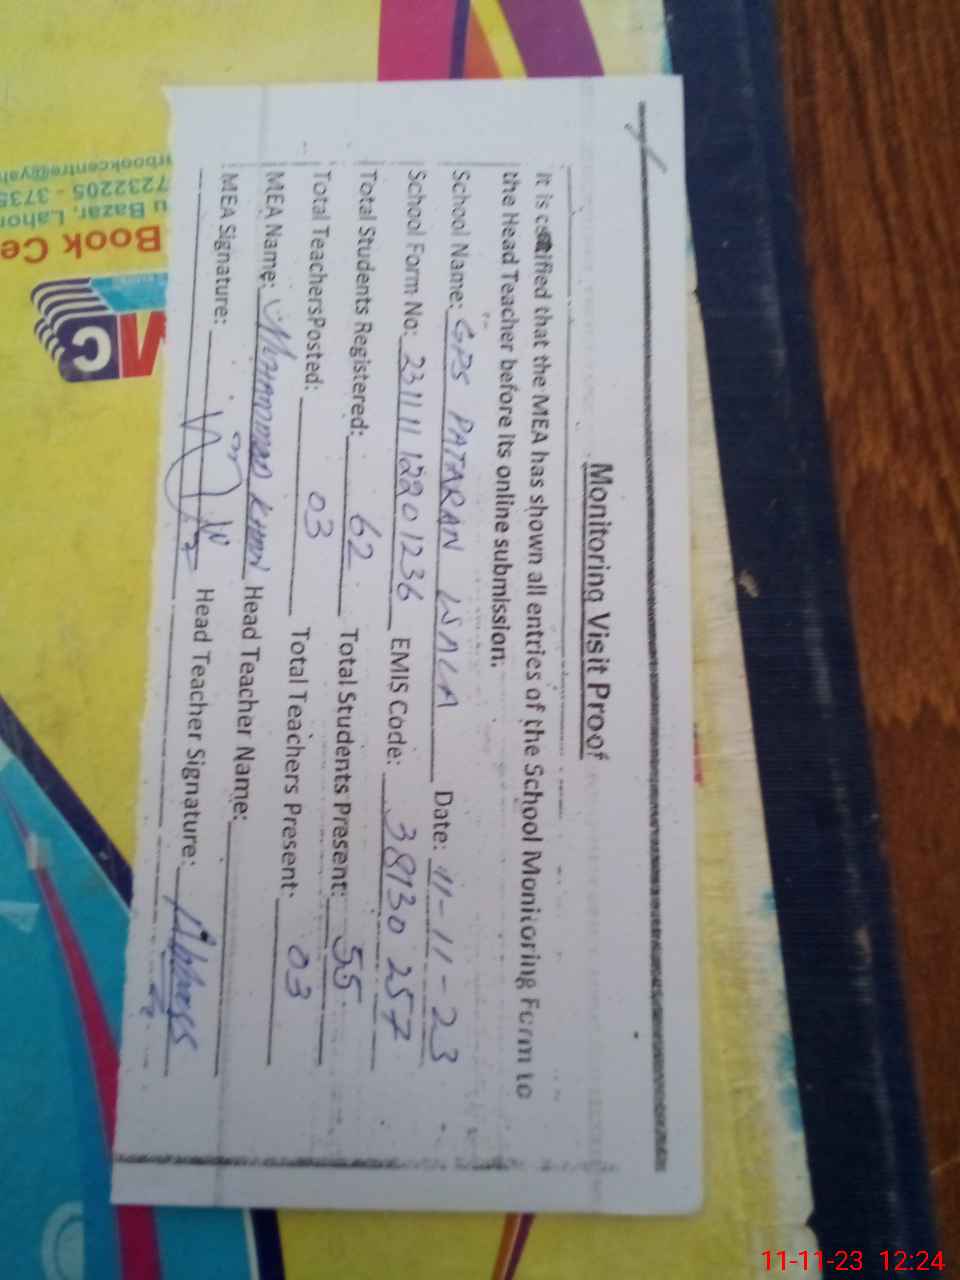 Monitoring Visit Proof
It is certified that the MEA has shown all entries of the School Monitoring Form to
the Head Teacher before its online submission.
School Name: GPS PATARAN WALA Date: 11-11-23
School Form No: 231111 12201236 EMIS Code: 38130 257
Total Students Registered: 62 Total Students Present: 55
Total TeachersPosted: 03 Total Teachers Present: 03
MEA Name: MUHAMMAD KHAN Head Teacher Name:
MEA Signature: Head Teacher Signature:
Book Ce
u Bazar, Lahor
7232205 - 3735
rbookcentre@yah
MC
11-11-23 12:24